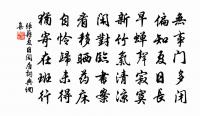 無事門多閉
偏知夏日長
早蟬聲寂寞
新竹氣清涼
閑對臨書案
看移曬藥床
自憐歸未得
猶寄在班行
張籍夏日閑居詞典網
集